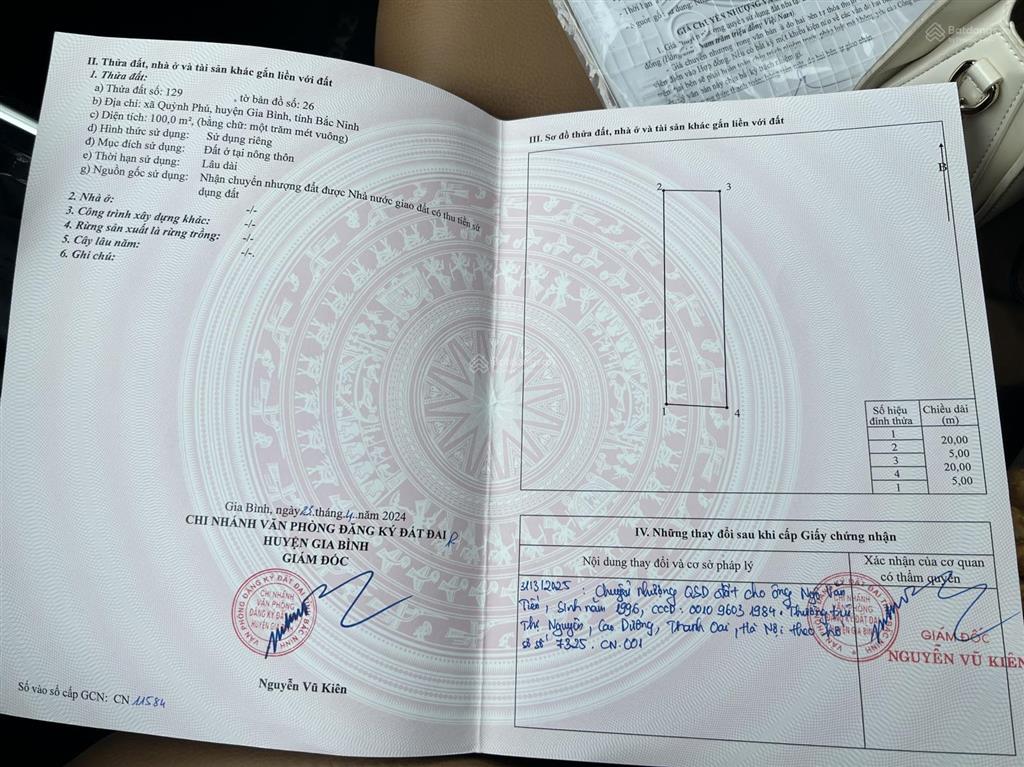 II. Thửa đất, nhà ở và tài sản khác gắn liền với đất
1. Thửa đất:
a) Thửa đất số: 129 , tờ bản đồ số: 26
b) Địa chỉ: xã Quỳnh Phú, huyện Gia Bình, tỉnh Bắc Ninh
c) Diện tích: 100,0 m², (bằng chữ: một trăm mét vuông)
d) Hình thức sử dụng: Sử dụng riêng
đ) Mục đích sử dụng: Đất ở tại nông thôn
e) Thời hạn sử dụng: Lâu dài
g) Nguồn gốc sử dụng: Nhận chuyển nhượng đất được Nhà nước giao đất có thu tiền sử
dụng đất
2. Nhà ở: -/-
3. Công trình xây dựng khác: -/-
4. Rừng sản xuất là rừng trồng: -/-
5. Cây lâu năm: -/-.
6. Ghi chú:
Gia Bình, ngày 25 tháng 4 năm 2024
CHI NHÁNH VĂN PHÒNG ĐĂNG KÝ ĐẤT ĐAI
HUYỆN GIA BÌNH
GIÁM ĐỐC
CHI NHÁNH
VĂN PHÒNG
ĐĂNG KÝ ĐẤT ĐAI
HUYỆN GIA BÌNH
Nguyễn Vũ Kiên
Số vào sổ cấp GCN: CN 11584
III. Sơ đồ thửa đất, nhà ở và tài sản khác gắn liền với đất
B
2 3
1 4
Số hiệu đỉnh thửa Chiều dài (m)
1
20,00
2
5,00
3
20,00
4
5,00
1
IV. Những thay đổi sau khi cấp Giấy chứng nhận
Nội dung thay đổi và cơ sở pháp lý
Xác nhận của cơ quan
có thẩm quyền
31/3/2025 : Chuyển nhường QSD đất cho ông Ngô Văn
Tiến, Sinh năm 1996, CCCD. 0010 9603 1984. Thường trú
Nguyên, Cao Dương, Thanh Oai, Hà Nội theo hồ
sơ số 7325. CN. 001
GIÁM ĐỐC
NGUYỄN VŨ KIÊN
GIÁ CHUYỂN NHƯỢNG
Batdong